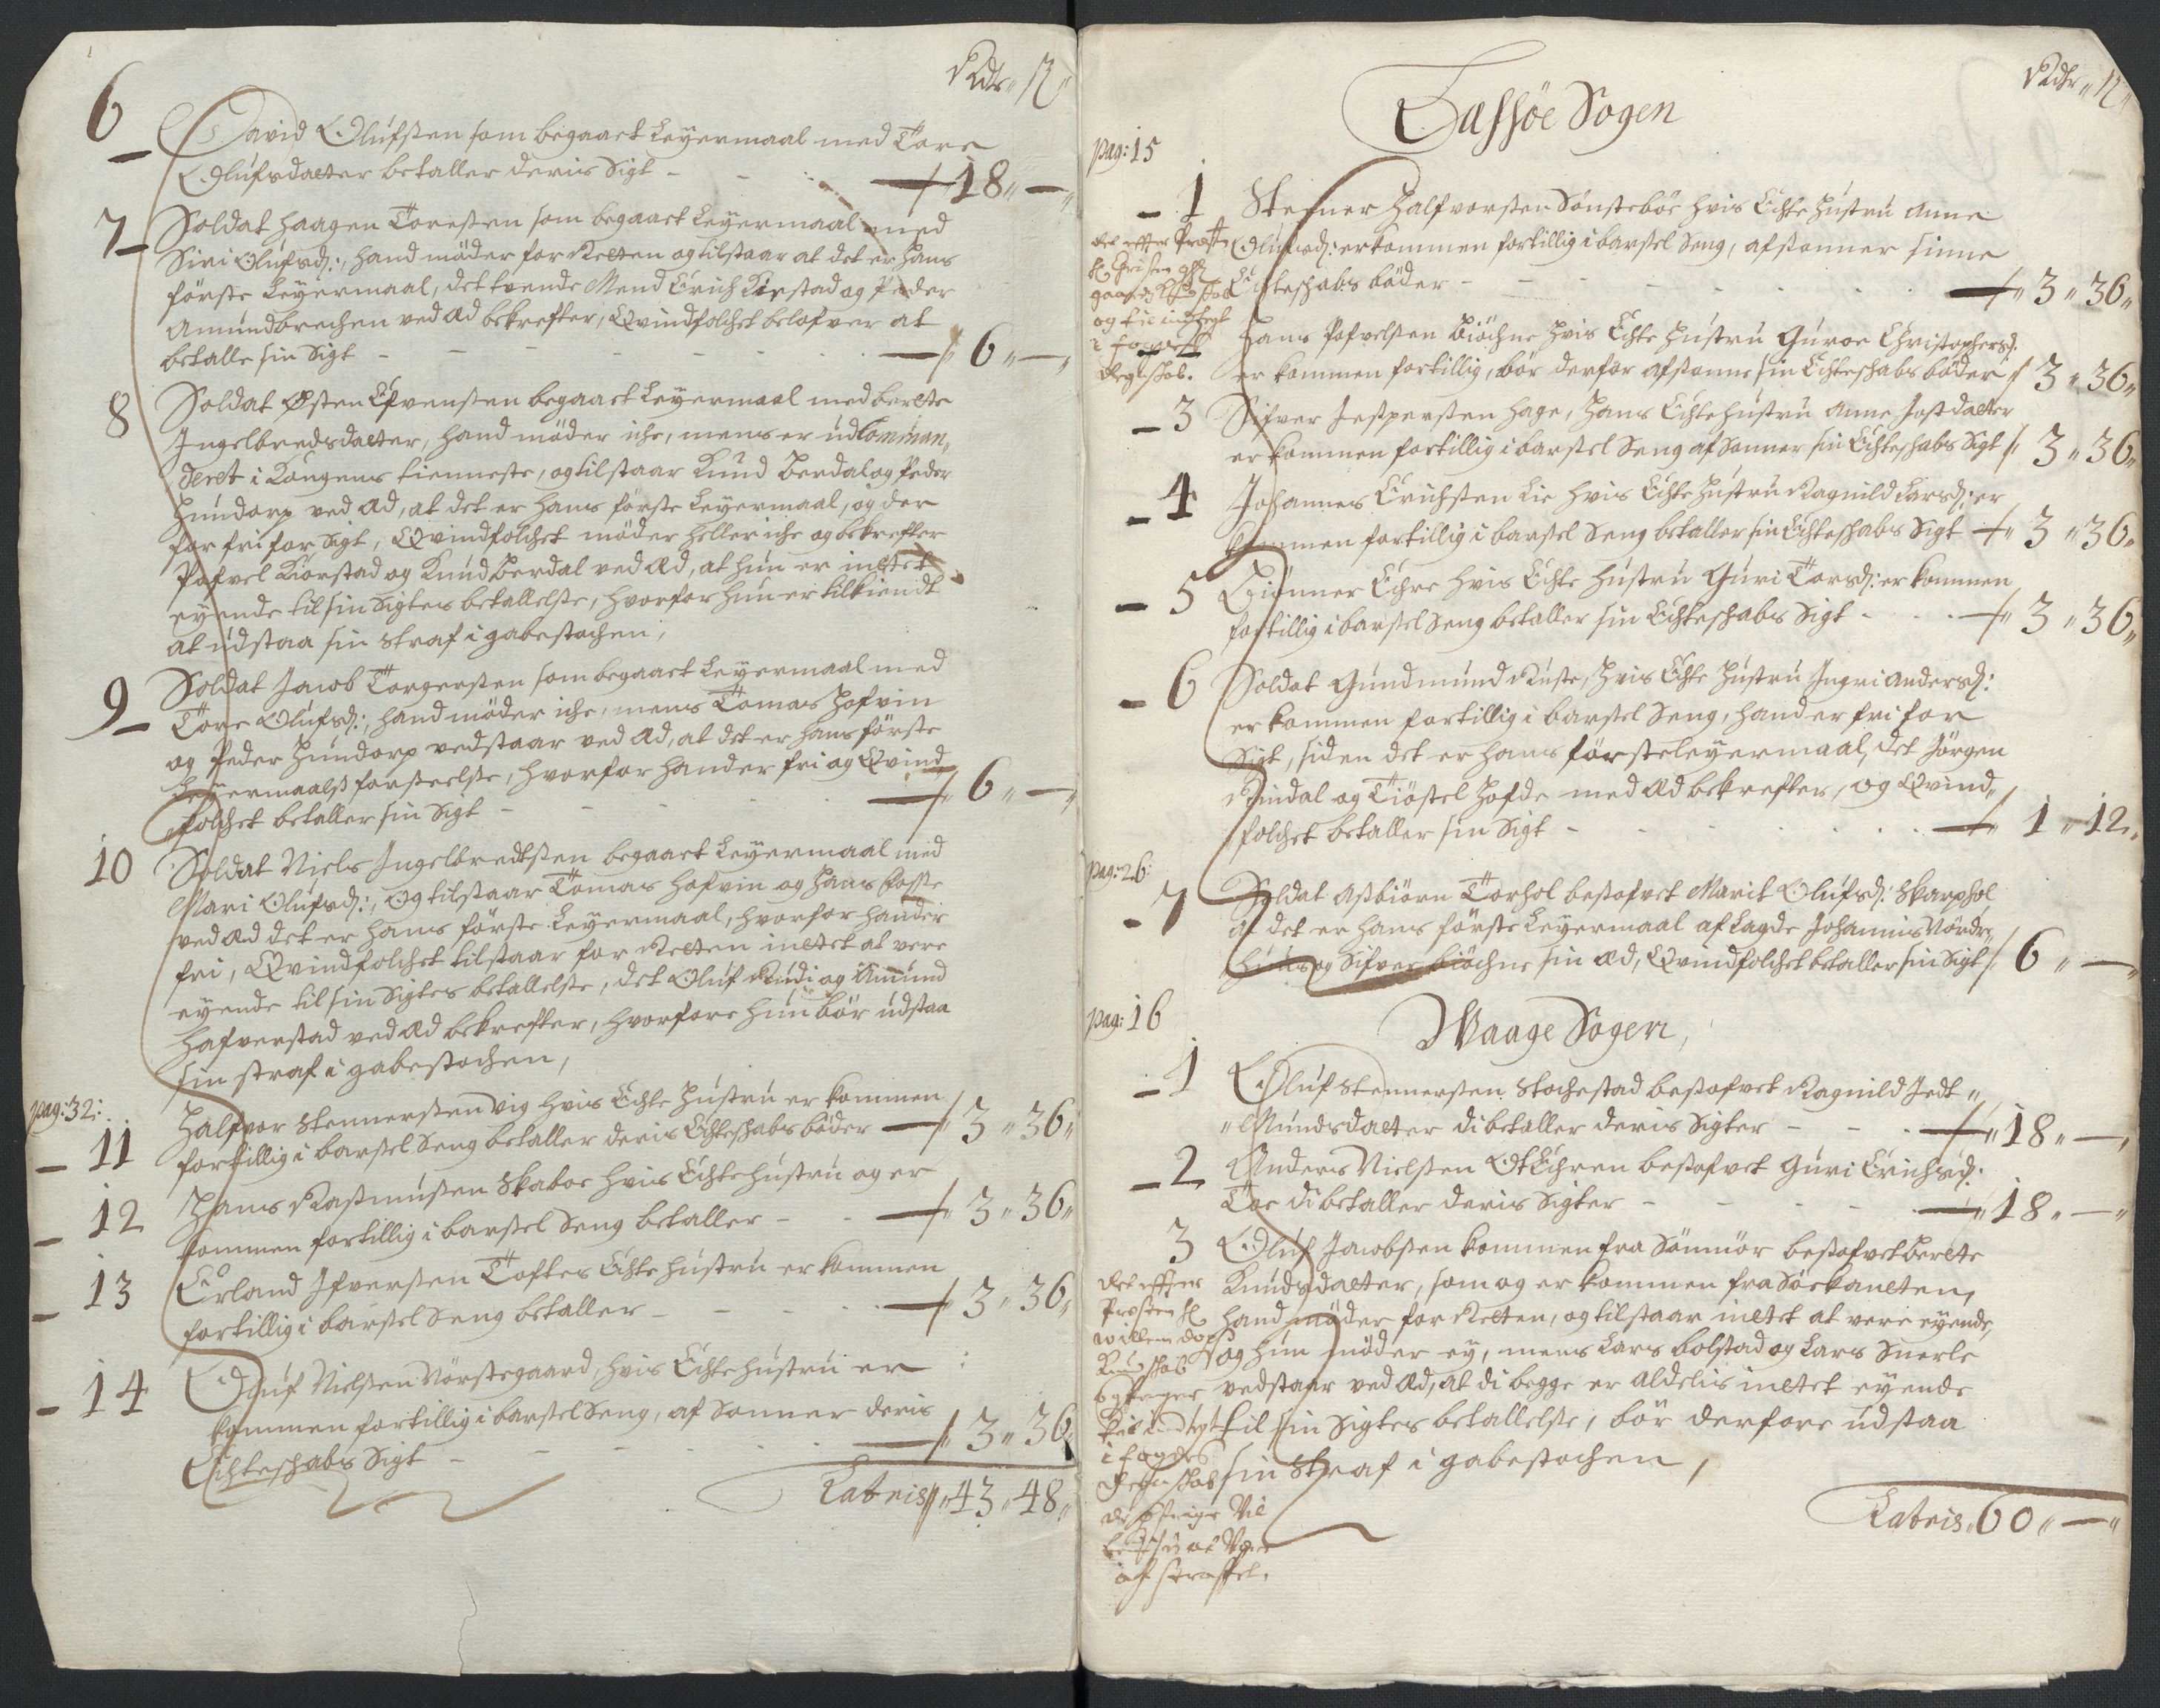 Rdlr„ ß„
6 David Olufsten som begaaet Leyermaal med Tore
Olufsdaetter betaller deris Sigt - - - 18„ —„
7 Soldat Haagen Toresten som begaaet Leyermaal med
Siri Olufsd:, hand möder for Retten og tilstaar at det er hans
förste Leyermaal, det tvende Mend Erich Kirstad og Peder
Amundbrechen ved Æd bekrefter, Qvindfolchet belofver at
betalle sin Sigt - - - 6„ —„
8 Soldat Østen Efvensten begaaet Leyermaal med berette
Ingelbredsdaetter, hand möder iche, mens er udComman„
deret i Kongens tienneste, og tilstaar Knud Berdal og Peder
Hundorp ved Æd, at det er hans förste Leyermaal, og der
for fri for Sigt, Qvindfolchet möder heller iche og bekrefter
Pofvel Kiorstad og Knud Berdal ved Æd, at hun er intet
eyende til sin Sigtes betallelste, hvorfor hun er tilkiendt
at udstaa sin straf i gabestochen,
9 Soldat Jacob Torgersten som begaaet Leyermaal med
Tore Olufsd:, hand möder iche, mens Tomas Hofvin
og Peder Hundorp vedstaar ved Æd, at det er hans förste
Leyermaalß forseelste, hvorfor hand er fri og Qvind
„folchet betaller sin Sigt - - - 6„ —„
10 Soldat Niels Ingelbredtsten begaaet Leyermaal med
Mari Olufsd:, Og tilstaar Tomas Hofvin og Hans Fosse
ved Æd det er hans förste Leyermaal, hvorfor hand er
fri, Qvindfolchet tilstaar for Retten intet at vere
eyende til sin Sigtes betallelste, det Oluf Rudi og Amund
Hafverstad ved Æd bekrefter, hvorfore hun bör udstaa
sin straf i gabestochen,
pag: 32:
11 Halfvor Stennersten Vig hvis Echte Hustru er kommen
fortillig i barstel Seng betaller deris Echteschabs böder 3„ 36„
12 Hans Rasmusten Skaboe hvis Echte Hustru og er
kommen fortillig i barstel Seng betaller - - 3„ 36„
13 Erland Ifversten Toftes Echte Hustru er kommen
fortillig i barstel Seng betaller - - - 3„ 36„
14 Oluf Nielsten Nörstegaard, hvis Echte Hustru er
kommen fortillig i barstel Seng, af Sonner deris
Echteschabs Sigt - - - 3„ 36„
Lateris „43„ 48„
Rdlr„ ß„
Lessöe Sogen
pag: 15
1 Stefner Halfvorsten Sönsteböe hvis Echte Hustru Anne
Olufsd: er kommen fortillig i barstel Seng, afsonner sinne
Echteschabs böder - - - 3„ 36„
det efter Prosten
og
i
Regnskab.
2 Hans Pofvelsten Biöchne hvis Echte Hustru Guroe Christophersd:
er kommen fortillig, bör derfor afsonne sin Echteschabs böder 3„ 36„
3 Sifver Jespersten Hage, hans Echte Hustru Anne Jostdaetter
er kommen fortillig i barstel Seng af Sonner sin Echteschabs Sigt 3„ 36„
4 Johannes Erichsten Lie hvis Echte Hustru Ragnild Larsd: er
kommen fortillig i barstel Seng betaller sin Echteschabs Sigt 3„ 36„
5 Giönner Echre hvis Echte Hustru Guri Torsd: er kommen
fortillig i barstel Seng betaller sin Echteschabs Sigt - 3„ 36„
6 Soldat Gundmund Ruste, hvis Echte Hustru Ingri Andersd:
er kommen fortillig i barstel Seng, hand er fri for
Sigt, siden det er hans förste leyermaal, det Jörgen
Rindal og Tiöstel Hofde med Æd bekrefter, og Qvind„
folchet betaller sin Sigt - - - 1„ 12„
pag: 26:
7 Soldat Asbiörn Torhol besofvet Marit Olufsd: Skarphol
at det er hans förste Leyermaal aflagde Johannis Nördre
Huus og Sifver Biöchne sin Æd, Qvindfolchet betaller sin Sigt 6„ —„
pag: 16
Waage Sogen,
1 Oluf Stennersten Stochestad besofvet Ragnild Jedt„
„Mundsdaetter di betaller deris Sigter - - 18„ —„
2 Anders Nielsten OtEchren besofvet Guri Erichsd:
Toe di betaller deris Sigter - - - 18„ —„
3 Oluf Jacobsten kommen fra Sönmör besofvet berette
Knudsdaetter, som og er kommen fra Sörkanten,
hand möder for Retten, og tilstaar intet at vere eyende,
og hun möder ey, mens Lars Bolstad og Lars Snerle
vedstaar ved Æd, at di begge er aldelis intet eyende
til sin Sigtes betallelste, bör derfore udstaa
sin Straf i gabestochen,
det efter
Prosten Hr
Willem
i fogdes
Regnskab
af straffet.
Lateris „60„ —„